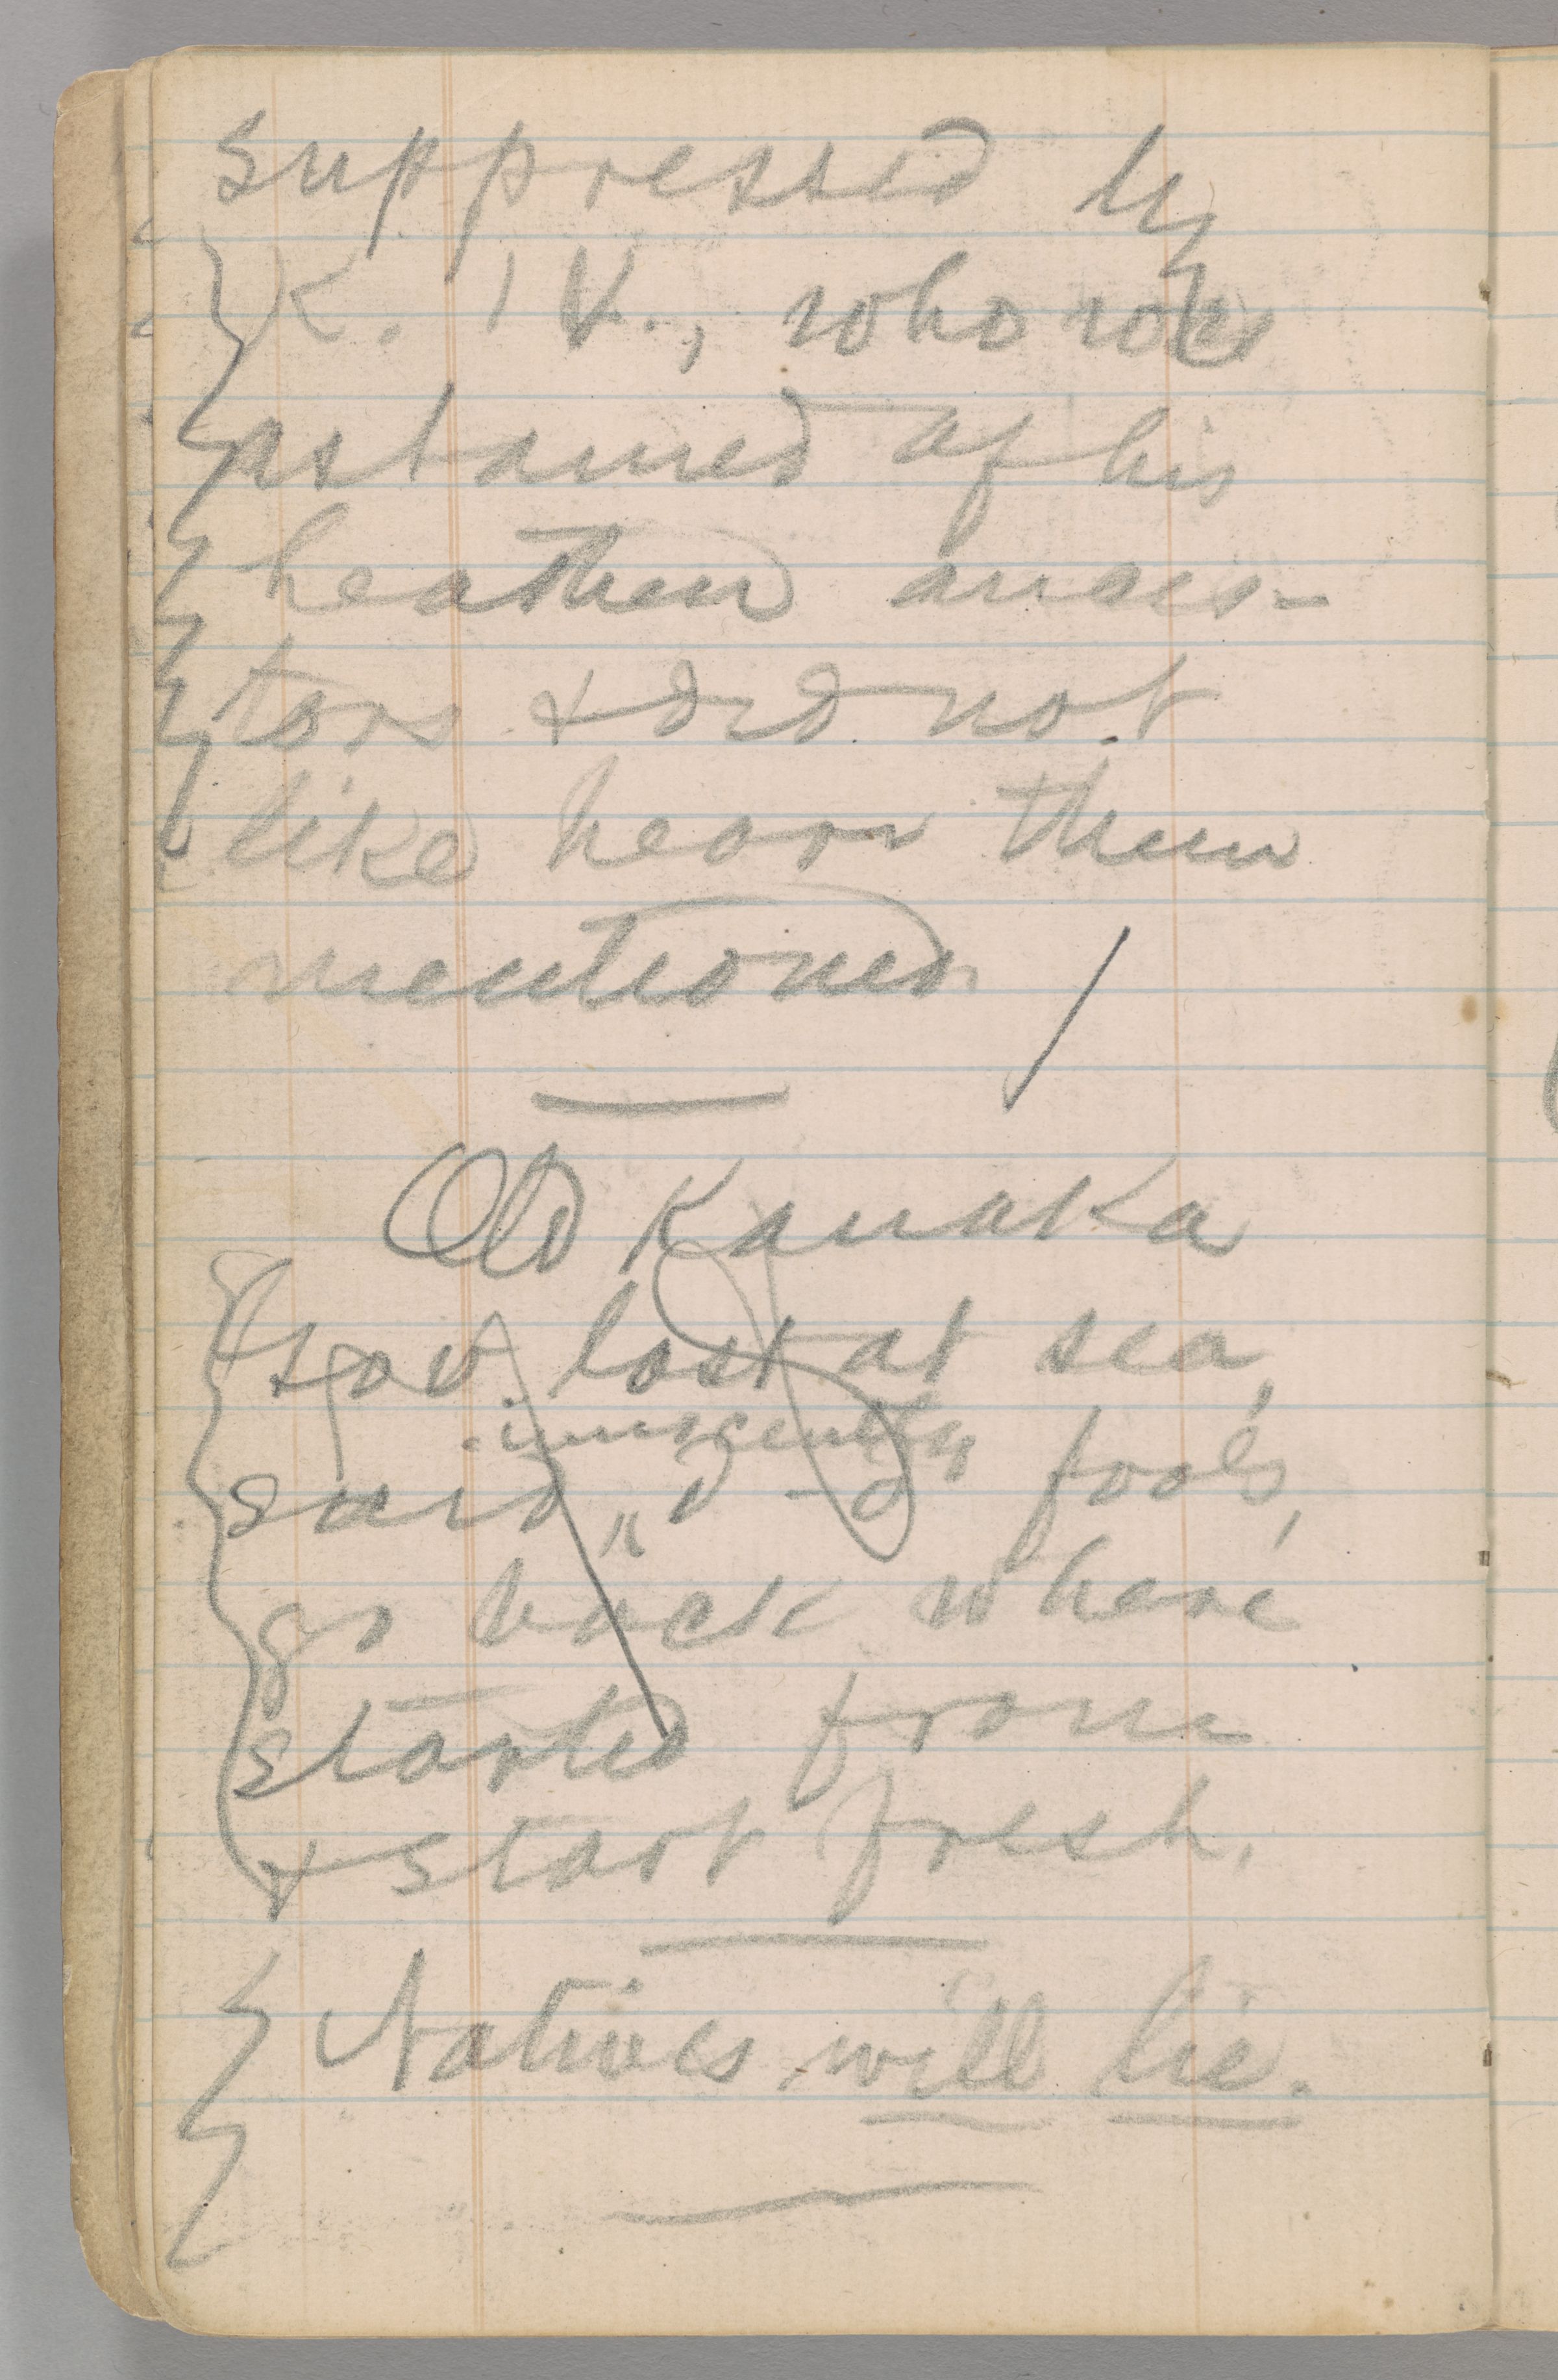 suppressed by
K. IV., who was
ashamed of his
heathen ances-
tors & did not
like hear them
mentioned.
Old Kanaka
Gov. lost at sea,
indigently
said, "d—d fools,
go back where
started from
& start fresh.
Natives will lie.